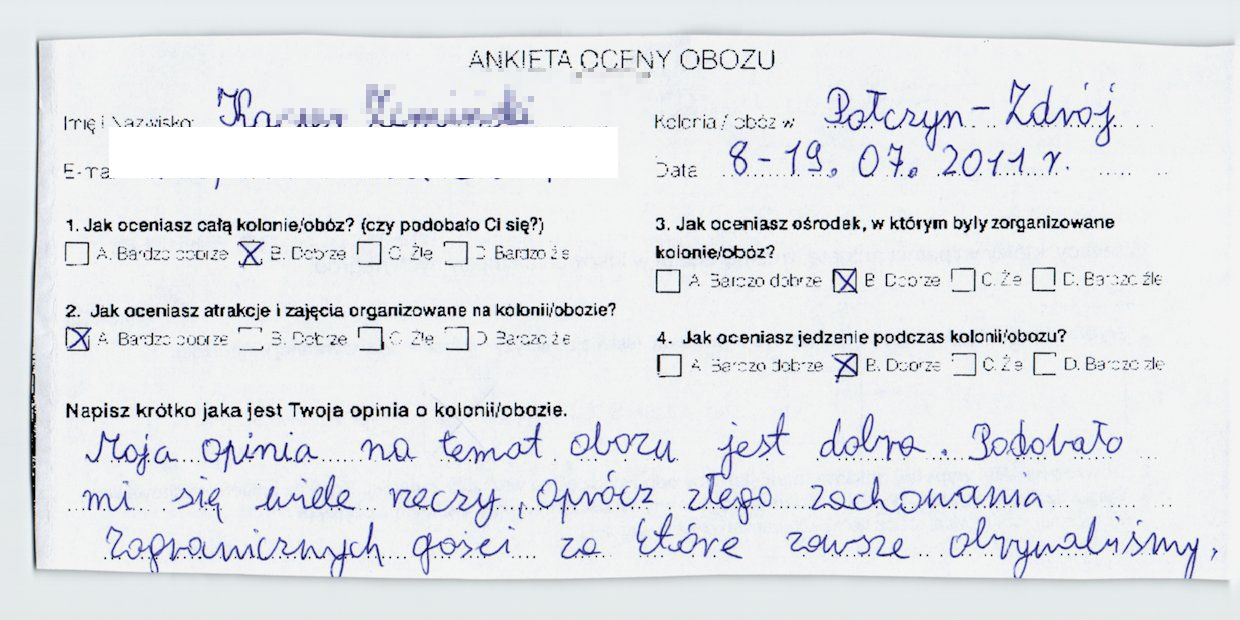 ANKIETA OCENY OBOZU
Imię i Nazwisko:
Kolonia / obóz w Połczyn-Zdrój
E-ma
Data 8-19. 07. 2011 r.
1. Jak oceniasz całą kolonie/obóz? (czy podobało Ci się?)
A. Bardzo dobrze B. Dobrze C. Źle D. Bardzo źle
2. Jak oceniasz atrakcje i zajęcia organizowane na kolonii/obozie?
A. Bardzo dobrze B. Dobrze C. Źle D. Bardzo źle
3. Jak oceniasz ośrodek, w którym były zorganizowane
kolonie/obóz?
A. Bardzo dobrze B. Dobrze C. Źle D. Bardzo źle
4. Jak oceniasz jedzenie podczas kolonii/obozu?
A. Bardzo dobrze B. Dobrze C. Źle D. Bardzo źle
Napisz krótko jaka jest Twoja opinia o kolonii/obozie.
Moja opinia na temat obozu jest dobra. Podobało
mi się wiele rzeczy, oprócz złego zachowania
zagranicznych gości za które zawsze obrywaliśmy,